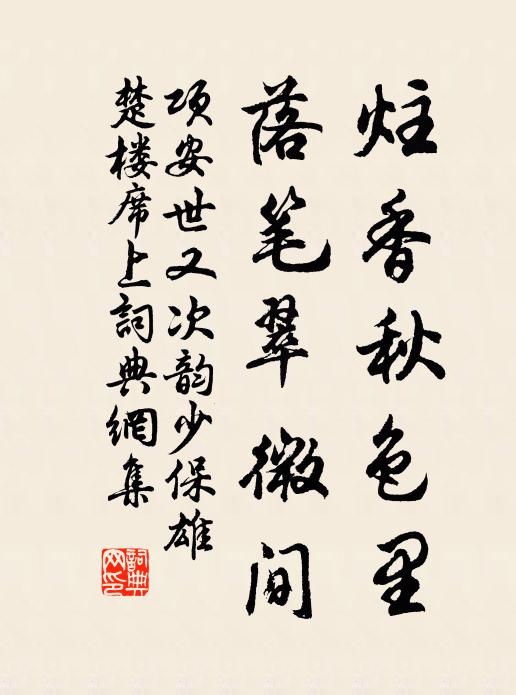 炷香秋色里
落笔翠微间
项安世又次韵少保雄
楚楼席上詞典網集
詞典
网印